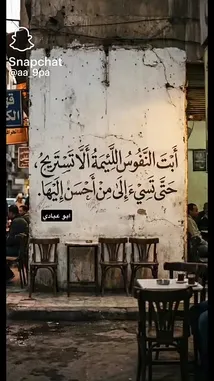 Snapchat
@aa_9pa
أَبَتِ النُّفُوسُ اللَّئِيمَةُ أَلَّا تَسْتَرِيحَ،
حَتَّى تُسِيْءَ إِلَى مِنْ أَحْسَنَ إِلَيْهَا.
ابو عبادي